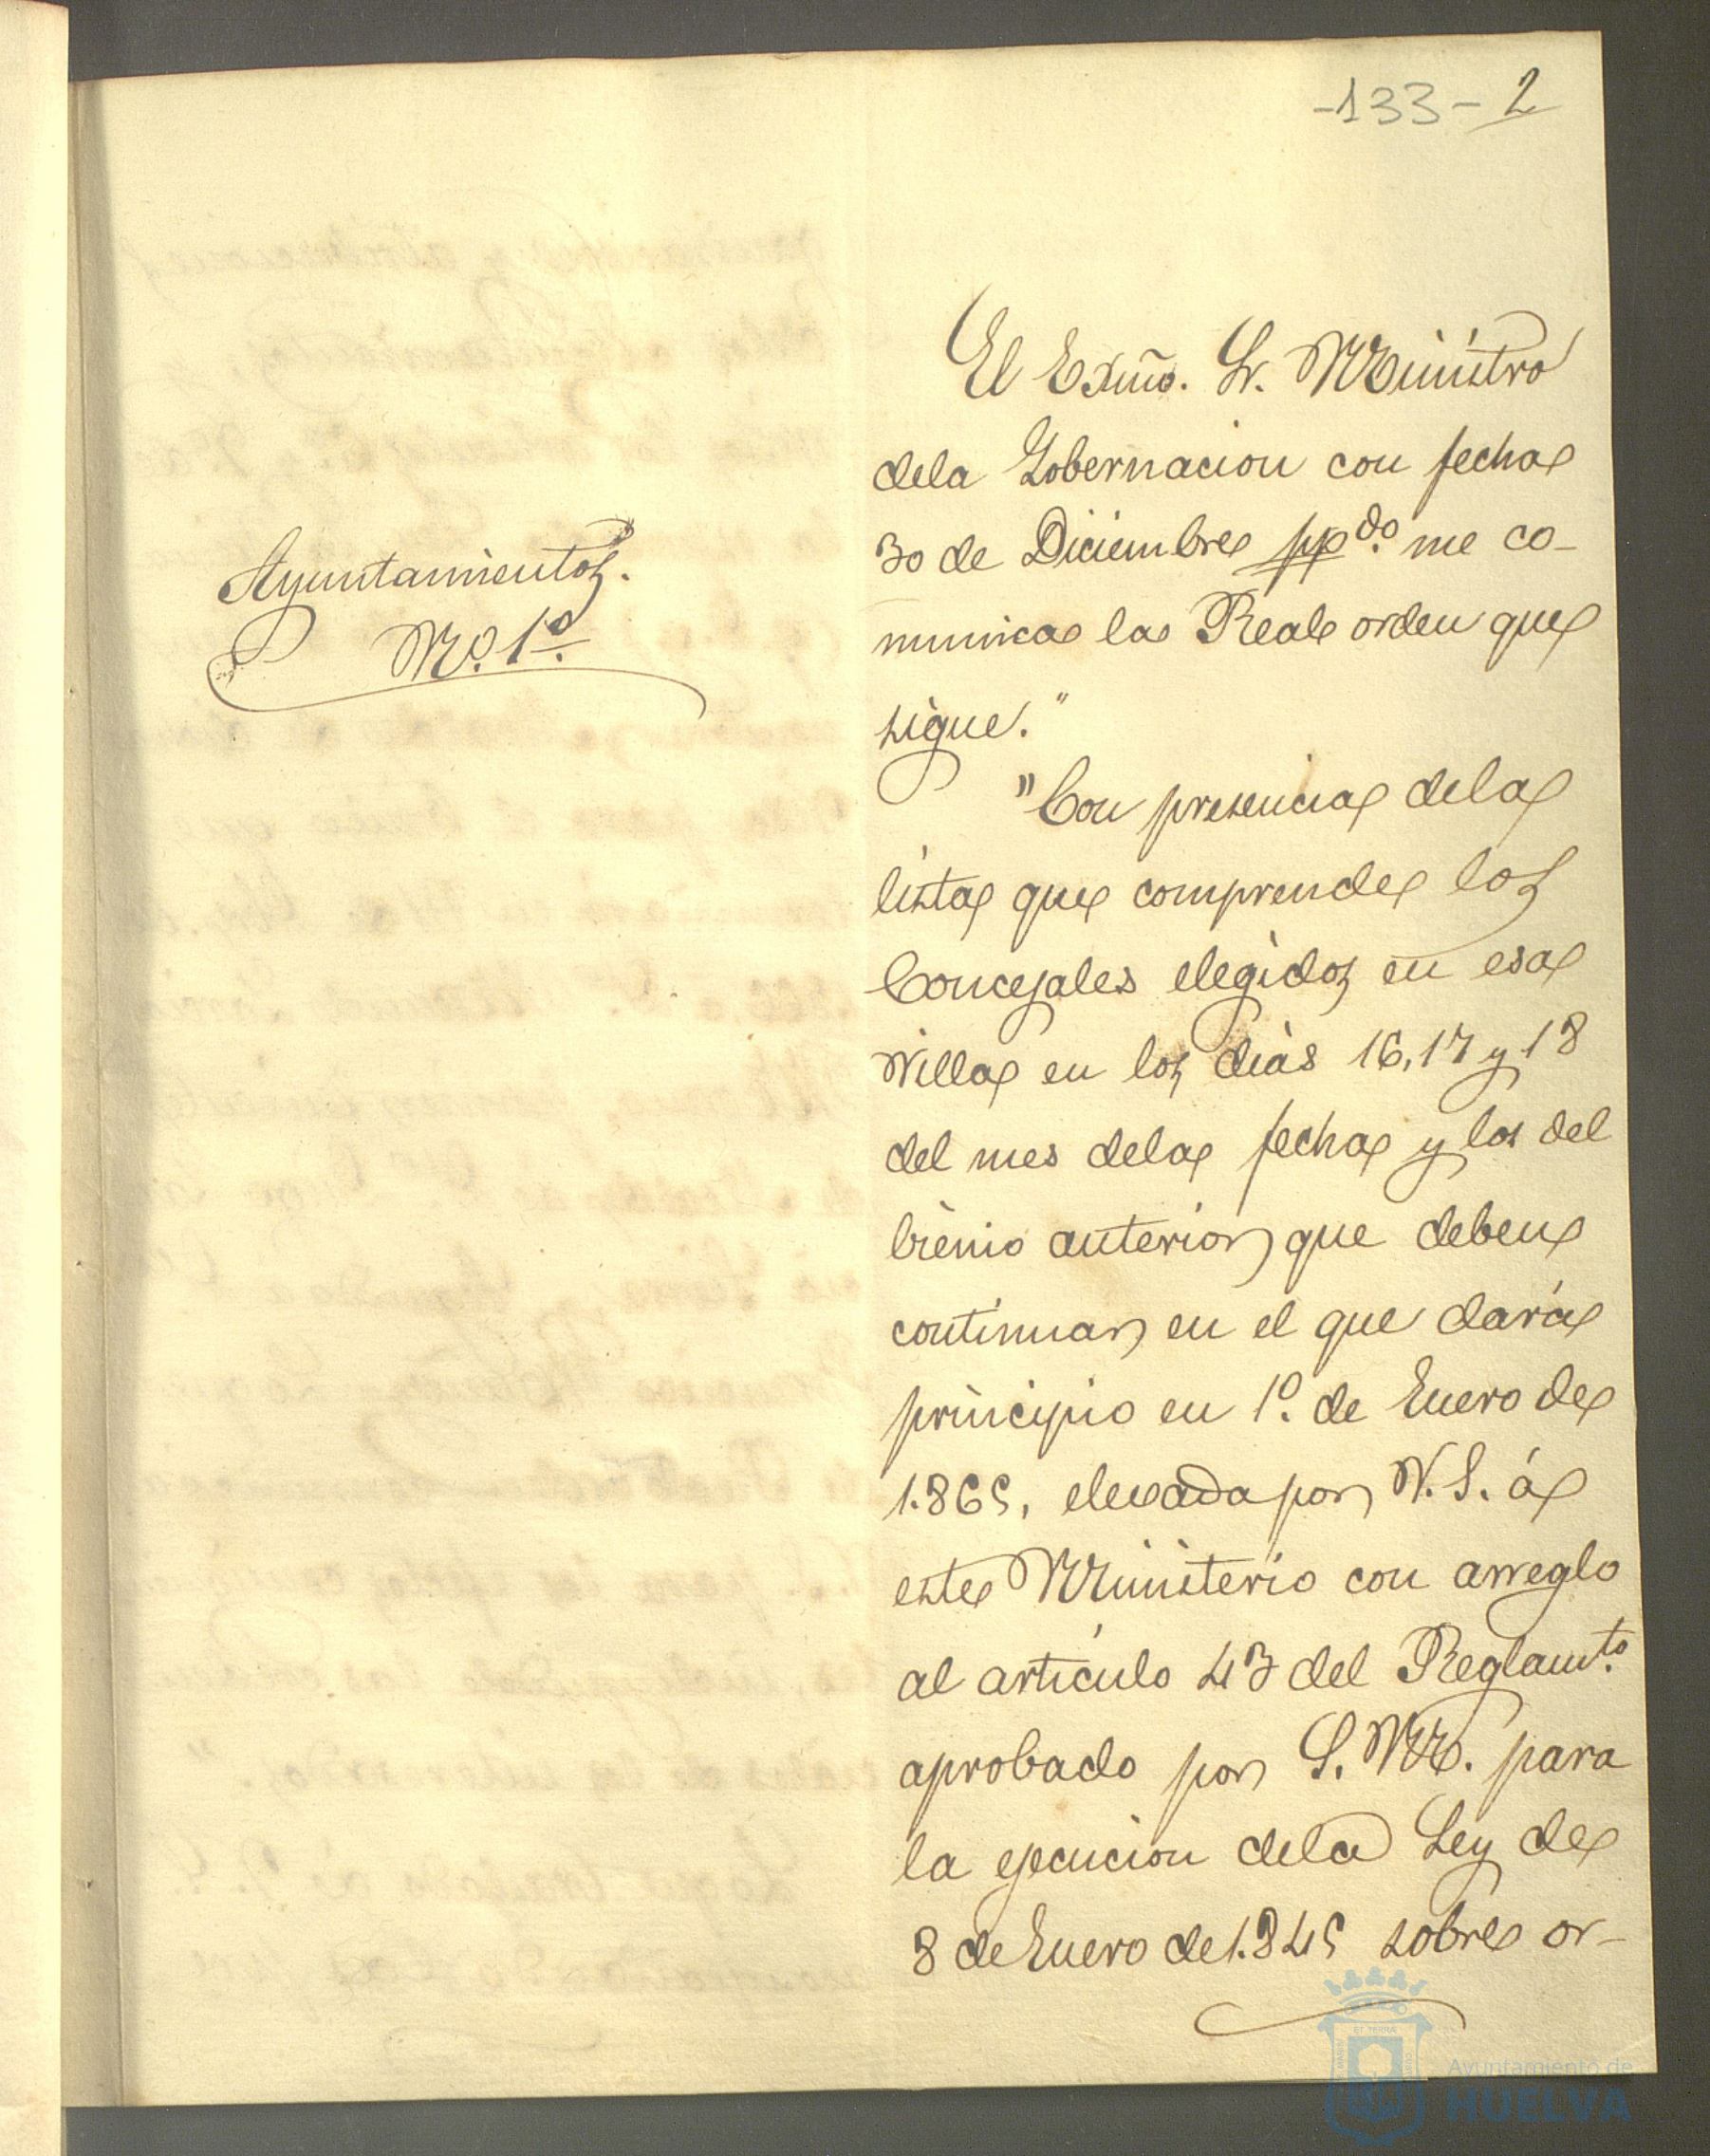 -133- 2
Ayuntamientos.
No. 1º.
El Exmo. Sr. Ministro
dela Gobernacion con fecha
30 de Diciembre ppdo. me co-
munica la Real orden que
sigue."
"Con presencia dela
lista que comprende los
Concejales elegidos en esa
Villa en los dias 16, 17 y 18
del mes dela fecha y los del
bienio anterior que deben
continuar en el que dará
principio en 1º. de Enero de
1.865, elevada por V. S. á
este Ministerio con arreglo
al artículo 43 del Reglamto.
aprobado por S. M. para
la ejecucion dela Ley de
8 de Enero de 1.845 sobre or-
Ayuntamiento de
HUELVA